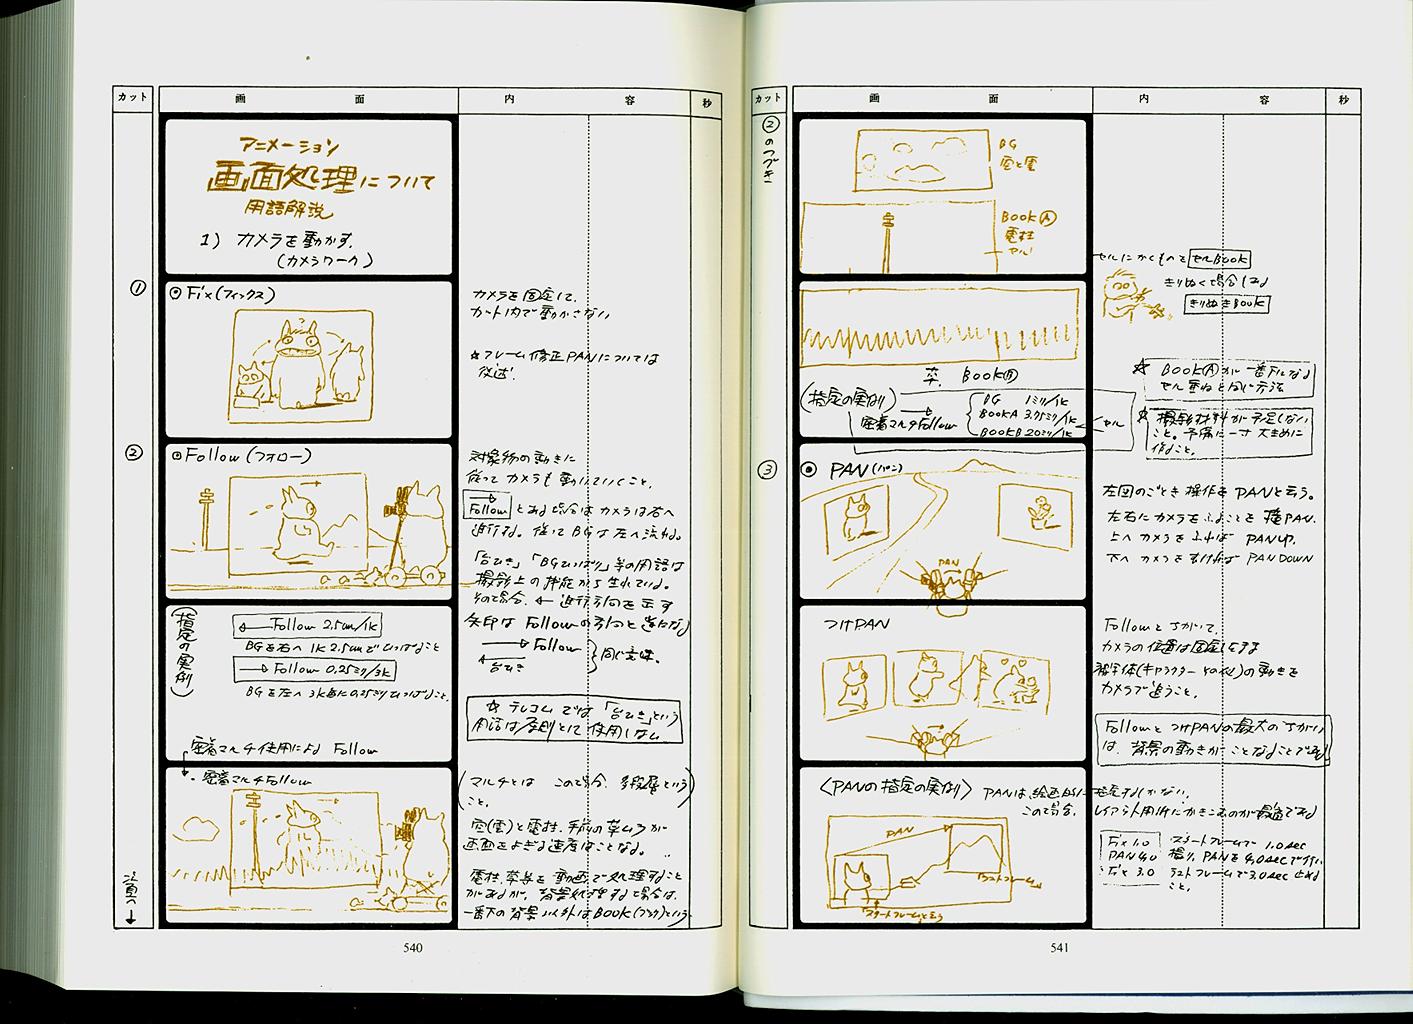 カット
画 面
内 容
秒
アニメーション
画面処理について
用語解説
1) カメラを動かす.
(カメラワーク)
①
⦿ Fix(フィックス)
カメラを固定して.
カット内で動かさない
☆フレーム修正PANについては
後述.
②
⦿ Follow(フォロー)
対象物の動きに
従って カメラも動いていくこと.
Follow とある場合はカメラは右へ
進行する. 従ってBGは左へ流れる.
「台ひき」「BGひっぱり」等の用語は
撮影上の機能から生れている.
その場合. ← 進行方向を示す
矢印は Followの方向と逆になる
→ Follow
← 台ひき
同じ意味.
☆ テレコムでは「台ひき」という
用語は原則として使用しない
(指定の実例)
← Follow 2.5cm/1k
BGを右へ 1k 2.5cmでひっぱること
→ Follow 0.25ミリ/3k
BGを左へ 3k毎に0.25ミリひっぱること.
密着マルチ使用による Follow
・密着マルチFollow
(マルチとは この場合. 多段層という
こと.)
空(雲)と電柱. 手前の草ムラが
画面をよぎる速度はことなる.
電柱. 草等を動画で処理すること
もあるが. 背景処理する場合は.
一番下の背景以外はBOOK(ブック)という
次頁へ ↓
540
カット
画 面
内 容
秒
②のつづき
BG
空と雲
BOOK Ⓐ
電柱
セル
セルにかくものを セルBOOK
きりぬく場合は
きりぬきBOOK
草. BOOK Ⓑ
(指定の実例)
密着マルチFollow →
BG 1ミリ/1k
BOOKA 3.75ミリ/1k
BOOKB 20ミリ/1k
セル
☆ BOOKⒶが一番下になる
セル重ねと同じ方法
☆ 撮影材料が不足しない
こと. 予備に一寸大きめに
作ること.
③
⦿ PAN(パン)
PAN
左図のごとき操作をPANと云う.
左右にカメラをふることを横PAN.
上へカメラをふれば PANUP.
下へカメラを PANDOWN
つけPAN
Followとちがって.
カメラの位置は固定したまま
被写体(キャラクターその他)の動きを
カメラで追うこと.
FollowとつけPANの最大のちがい
は. 背景の動きがことなることである
〈PANの指定の実例〉
PANは、絵画的に指定するしかない.
この場合. レイアウト用紙にかきこむのが最適である
PAN
ラストフレーム
スタートフレームと云う
Fix 1.0
PAN 4.0
Fix 3.0
スタートフレームで 1.0sec
撮り. PANを4.0secで行い
ラストフレームで3.0sec 止める
こと.
541